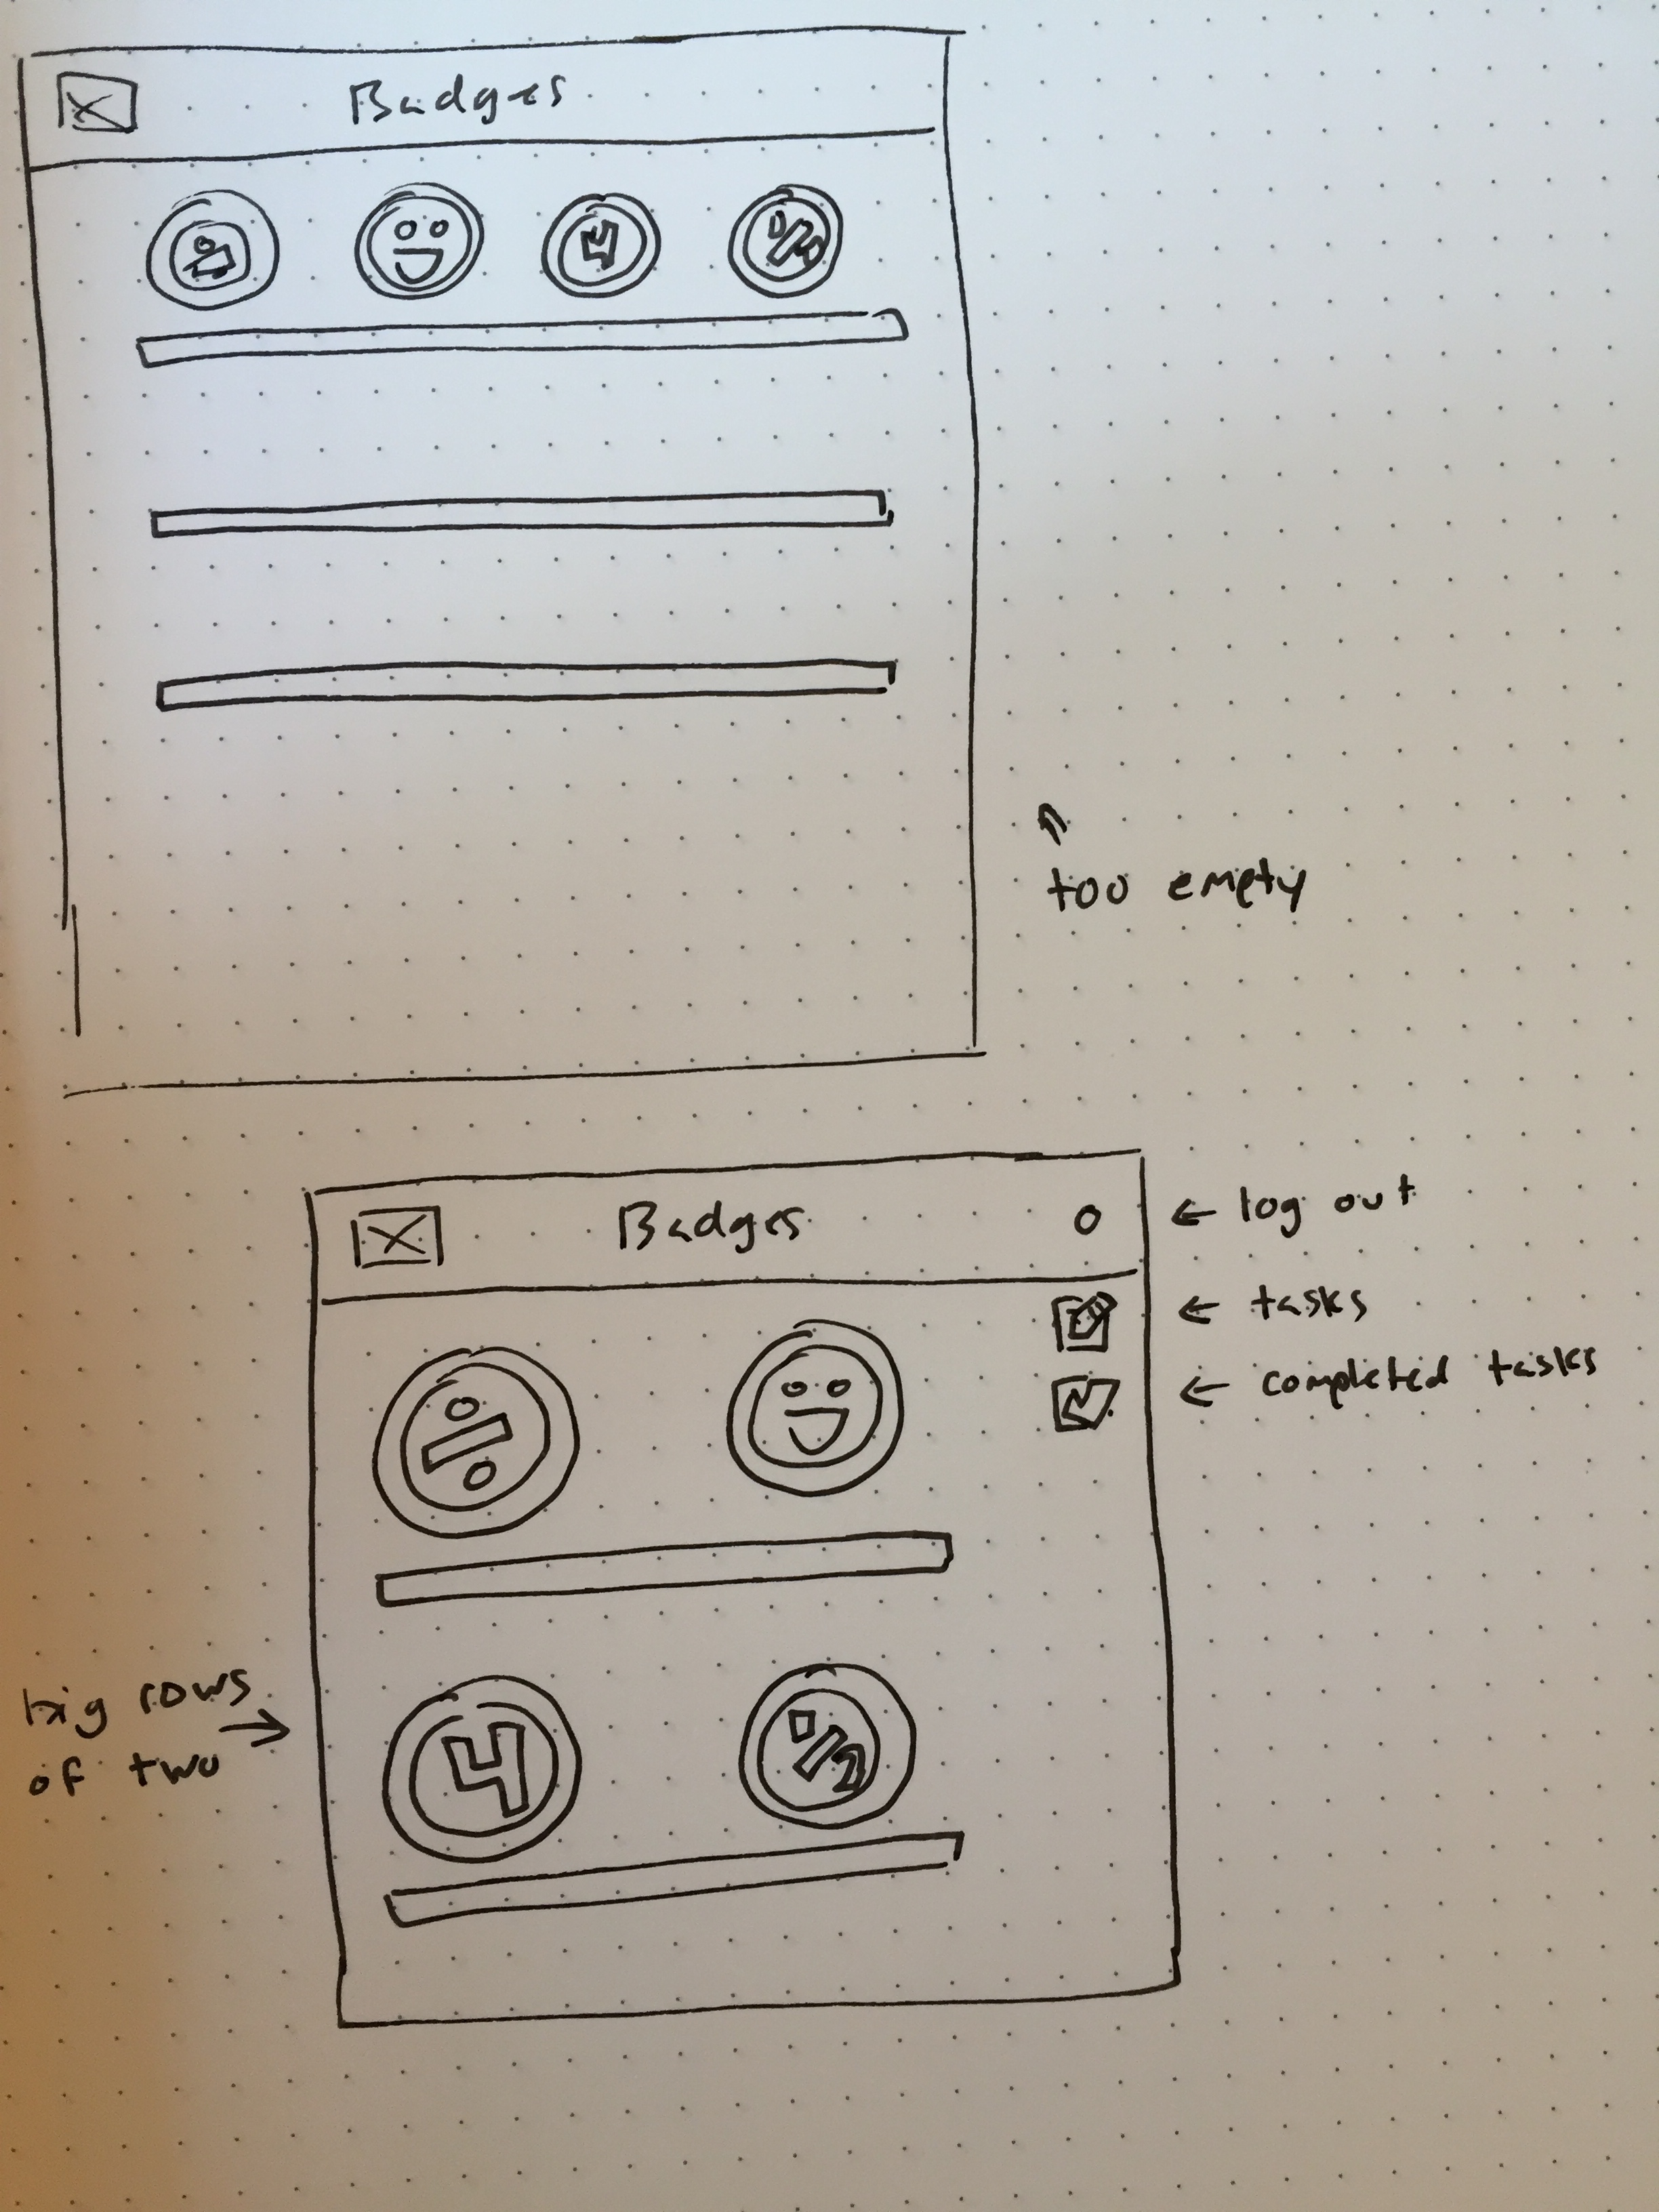 Badges
4
1/2
too empty
Badges
← log out
← tasks
← completed tasks
÷
big rows
of two →
4
1/2